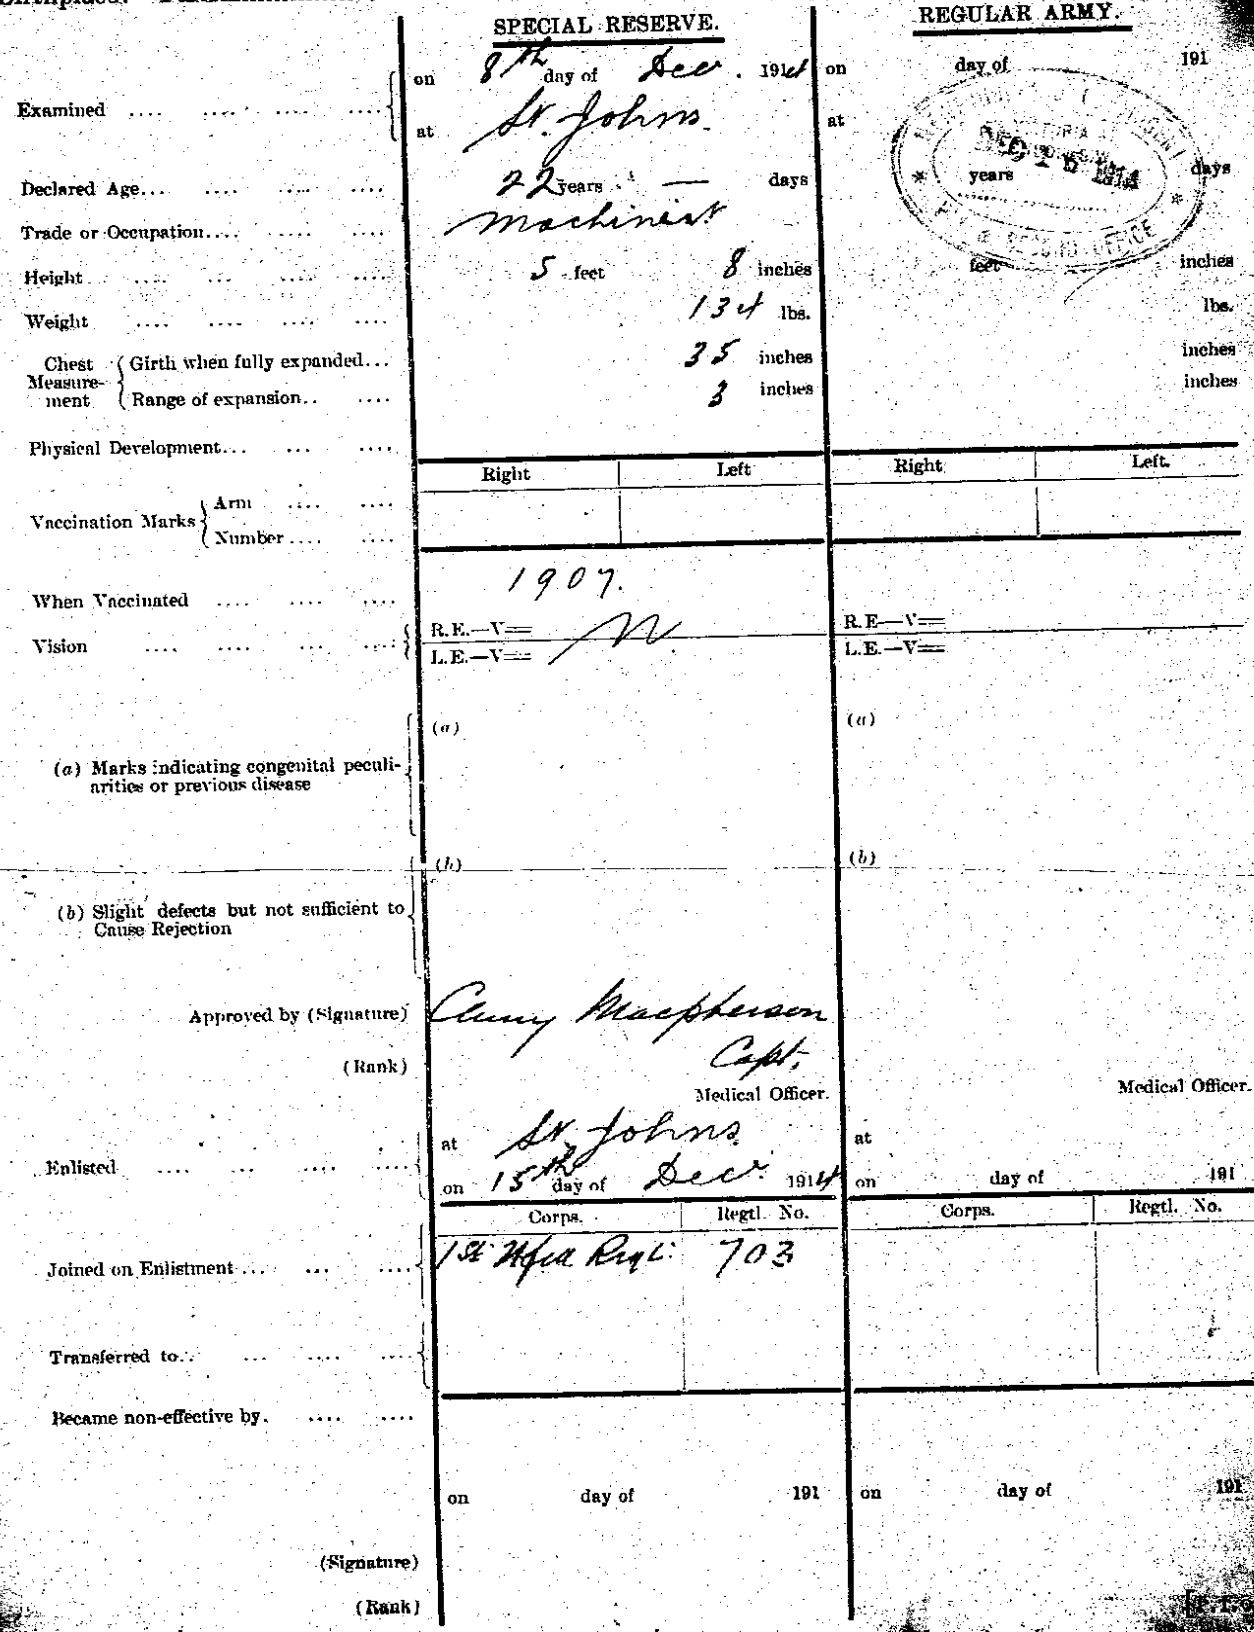 SPECIAL RESERVE. REGULAR ARMY.
Examined .... .... .... .... on 8th day of Dec. 1914 on day of 191
at St. Johns. at
Declared Age... .... .... .... 22 years — days years days
Trade or Occupation.... .... .... Machinist
Height .... ... .... .... 5 feet 8 inches feet inches
Weight .... .... .... .... 134 lbs. lbs.
Chest Measurement { Girth when fully expanded... 35 inches inches
Range of expansion.. .... 3 inches inches
Physical Development... ... ....
Right Left Right Left.
Vaccination Marks { Arm .... ....
Number .... ....
When Vaccinated .... .... .... 1907.
Vision .... .... ... .... R.E.—V= N R.E—V=
L.E.—V= L.E.—V=
(a) Marks indicating congenital peculi- (a) (a)
arities or previous disease
(b) Slight defects but not sufficient to (b) (b)
Cause Rejection
Approved by (Signature) Cluny Macpherson
(Rank) Capt.
Medical Officer. Medical Officer.
Enlisted .... ... .... .... at St. Johns. at
on 15th day of Dec. 1914 on day of 191
Corps. Regtl. No. Corps. Regtl. No.
Joined on Enlistment ... ... .... 1st Nfld Regt. 703
Transferred to.. ... .... ....
Became non-effective by. .... ....
on day of 191 on day of 191
(Signature)
(Rank)